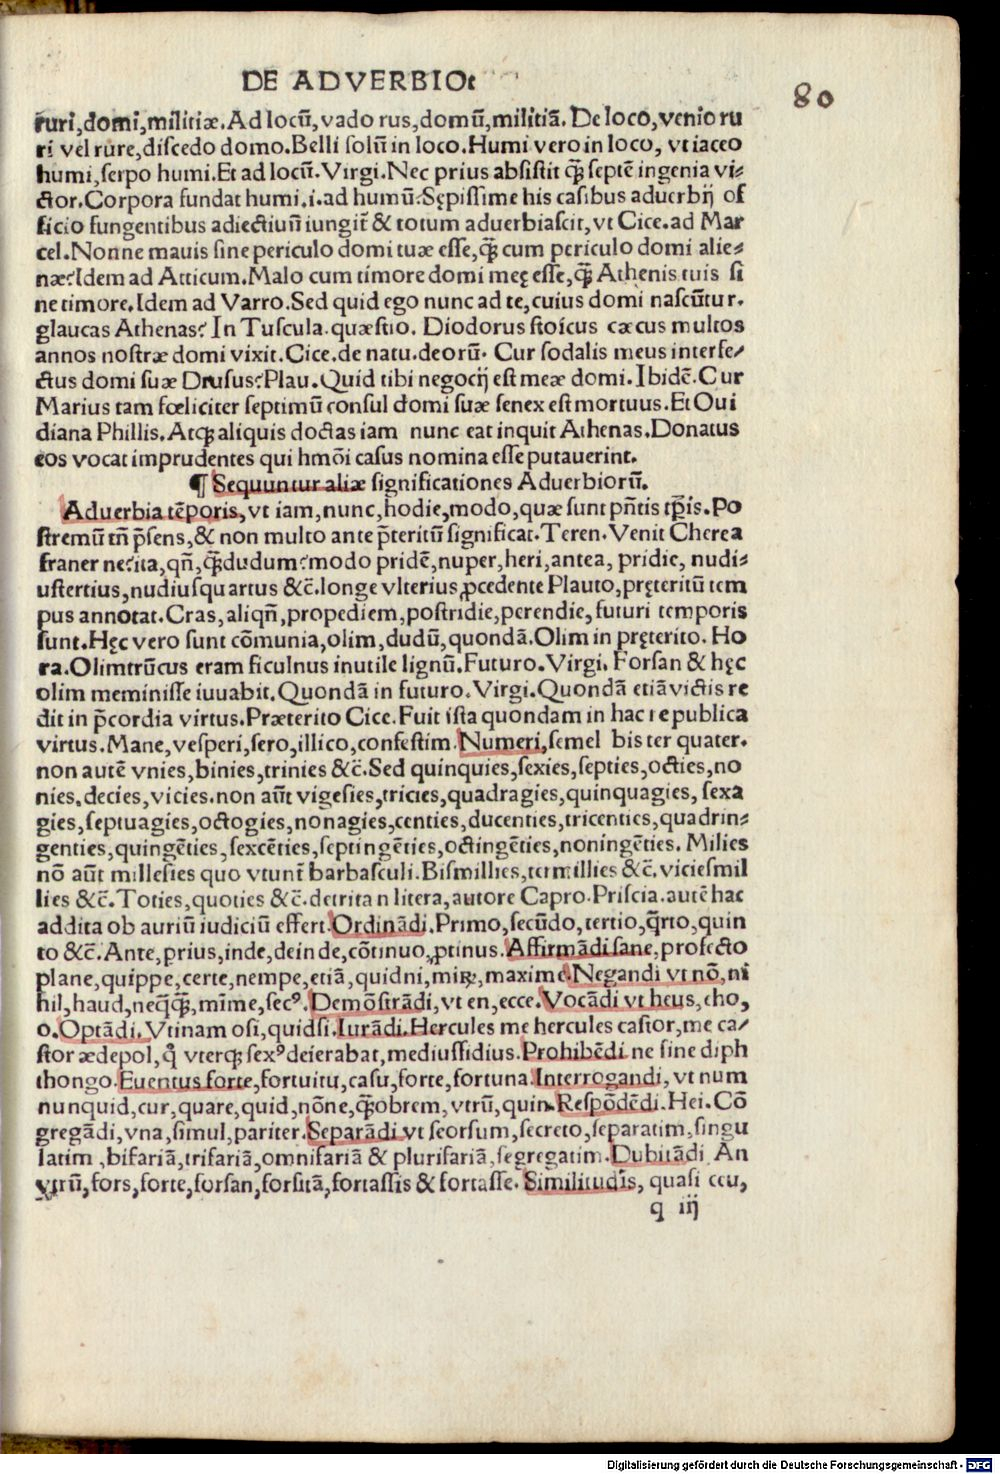 DE ADVERBIO.
80
ruri, domi, militiæ. Ad locū, vado rus, domū, militiā. De loco, venio ru
ri vel rure, discedo domo. Belli solū in loco. Humi vero in loco, vt iaceo
humi, serpo humi. Et ad locū. Virgi. Nec prius absistit q̄ septē ingenia vi-
ctor. Corpora fundat humi .i. ad humū. Sępissime his casibus aduerbij of
ficio fungentibus adiectiuū iungit̄ & totum aduerbiascit, vt Cice. ad Mar
cel. Nonne mauis sine periculo domi tuæ esse, q̄ cum periculo domi alie-
næ? Idem ad Atticum. Malo cum timore domi meę esse, q̄ Athenis tuis si
ne timore. Idem ad Varro. Sed quid ego nunc ad te, cuius domi nascūtur.
glaucas Athenas? In Tuscula. quæstio. Diodorus stoicus cæcus multos
annos nostræ domi vixit. Cice. de natu. deorū. Cur sodalis meus interfe/
ctus domi suæ Drusus? Plau. Quid tibi negocij est meæ domi. Ibidē. Cur
Marius tam fœliciter septimū consul domi suæ senex est mortuus. Et Oui
diana Phillis. Atq; aliquis doctas iam nunc eat inquit Athenas. Donatus
eos vocat imprudentes qui hmōi casus nomina esse putauerint.
¶ Sequuntur aliæ significationes Aduerbiorū.
Aduerbia tēporis, vt iam, nunc, hodie, modo, quæ sunt pn̄tis tp̄is. Po
stremū tn̄ p̄sens, & non multo ante p̄teritū significat. Teren. Venit Cherea
franer ne? ita, qn̄, q̄dudum? modo pridē, nuper, heri, antea, pridie, nudi-
ustertius, nudiusquartus &c̄. longe vlterius ꝓcedente Plauto, pręteritū tem
pus annotat. Cras, aliqn̄, propediem, postridie, perendie, futuri temporis
sunt. Hęc vero sunt cōmunia, olim, dudū, quondā. Olim in pręterito. Ho
ra. Olim trūcus eram ficulnus inutile lignū. Futuro. Virgi. Forsan & hęc
olim meminisse iuuabit. Quondā in futuro. Virgi. Quondā etiā victis re
dit in p̄cordia virtus. Præterito Cice. Fuit ista quondam in hac republica
virtus. Mane, vesperi, sero, illico, confestim. Numeri, semel bis ter quater.
non autē vnies, binies, trinies &c̄. Sed quinquies, sexies, septies, octies, no
nies. decies, vicies. non aūt vigesies, tricies, quadragies, quinquagies, sexa
gies, septuagies, octogies, nonagies, centies, ducenties, tricenties, quadrin-
genties, quingēties, sexcēties, septingēties, octingēties, noningēties. Milies
nō aūt millesies quo vtunt̄ barbasculi. Bismillies, termillies &c̄. viciesmil
lies &c̄. Toties, quoties &c̄. detrita n litera, autore Capro. Priscia. autē hac
addita ob auriū iudiciū effert. Ordinādi. Primo, secūdo, tertio, q̄rto, quin
to &c̄. Ante, prius, inde, deinde, cōtinuo, ꝓtinus. Affirmādi sane, profecto
plane, quippe, certe, nempe, etiā, quidni, miꝝ, maxime. Negandi vt nō, ni
hil, haud, neq̄q̄, mīme, secꝰ. Demōstrādi, vt en, ecce. Vocādi vt heus, eho,
o. Optādi. Vtinam osi, quidsi. Iurādi. Hercules me hercules castor, me ca/
stor ædepol, q̊ vterq; sexꝰ deierabat, mediussidius. Prohibēdi ne sine diph
thongo. Euentus forte, fortuitu, casu, forte, fortuna. Interrogandi, vt num
nunquid, cur, quare, quid, nōne, q̄obrem, vtrū, quin. Respōdēdi. Hei. Cō
gregādi, vna, simul, pariter. Separādi vt seorsum, secreto, separatim, singu
latim, bifariā, trifariā, omnifariā & plurifariā, segregatim. Dubitādi. An
vtrū, fors, forte, forsan, forsitā, fortassis & fortasse. Similitudīs, quasi ceu,
q iij
Digitalisierung gefördert durch die Deutsche Forschungsgemeinschaft - DFG